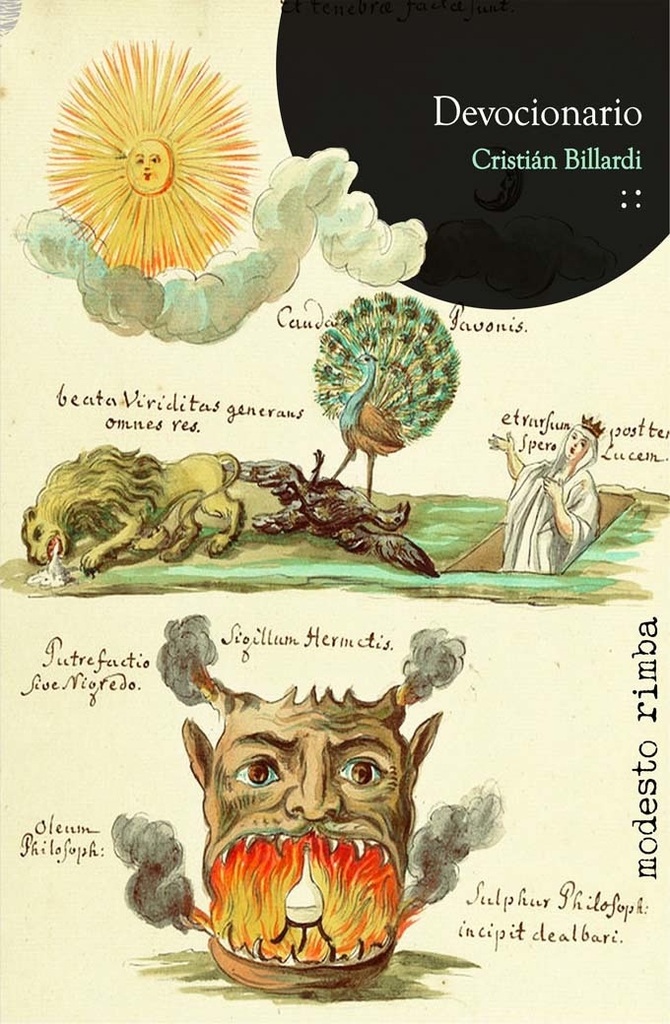 Et tenebræ factæ sunt.
Devocionario
Cristián Billardi
Cauda Pavonis.
beata Viriditas generans
omnes res.
et rursum
spero
post te
Lucem.
Sigillum Hermetis.
Putrefactio
sive Nigredo.
modesto rimba
Oleum
Philosoph:
Sulphur Philosoph:
incipit dealbari.